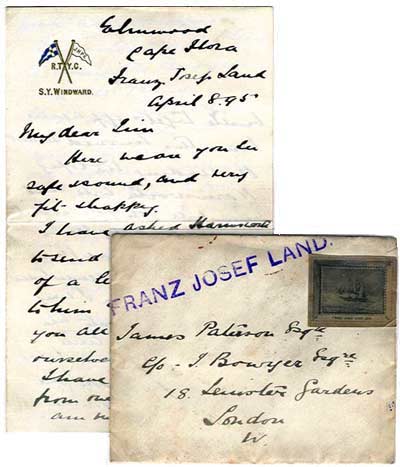 Elmwood
Cape Flora
Franz Josef Land
April 8. 95
R.T.Y.C.
S.Y. WINDWARD.
My dear Jim
Here we are you see
safe & sound, and very
fit & happy.
I have asked Harmsworth
to send
of a
to him
you all
I have
from one
am
FRANZ JOSEF LAND.
James Paterson Esqre
c/o - J. Bowyer Esqre
18. Leinster Gardens
London
W.